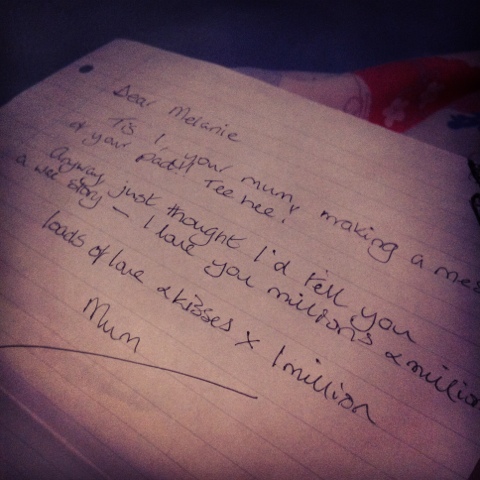 Dear Melanie
Tis I, your mum, making a mess
of your pad!! Tee hee!
Anyway just thought I'd tell you
a wee story – I love you millions & million
loads of love & kisses x 1 million
Mum